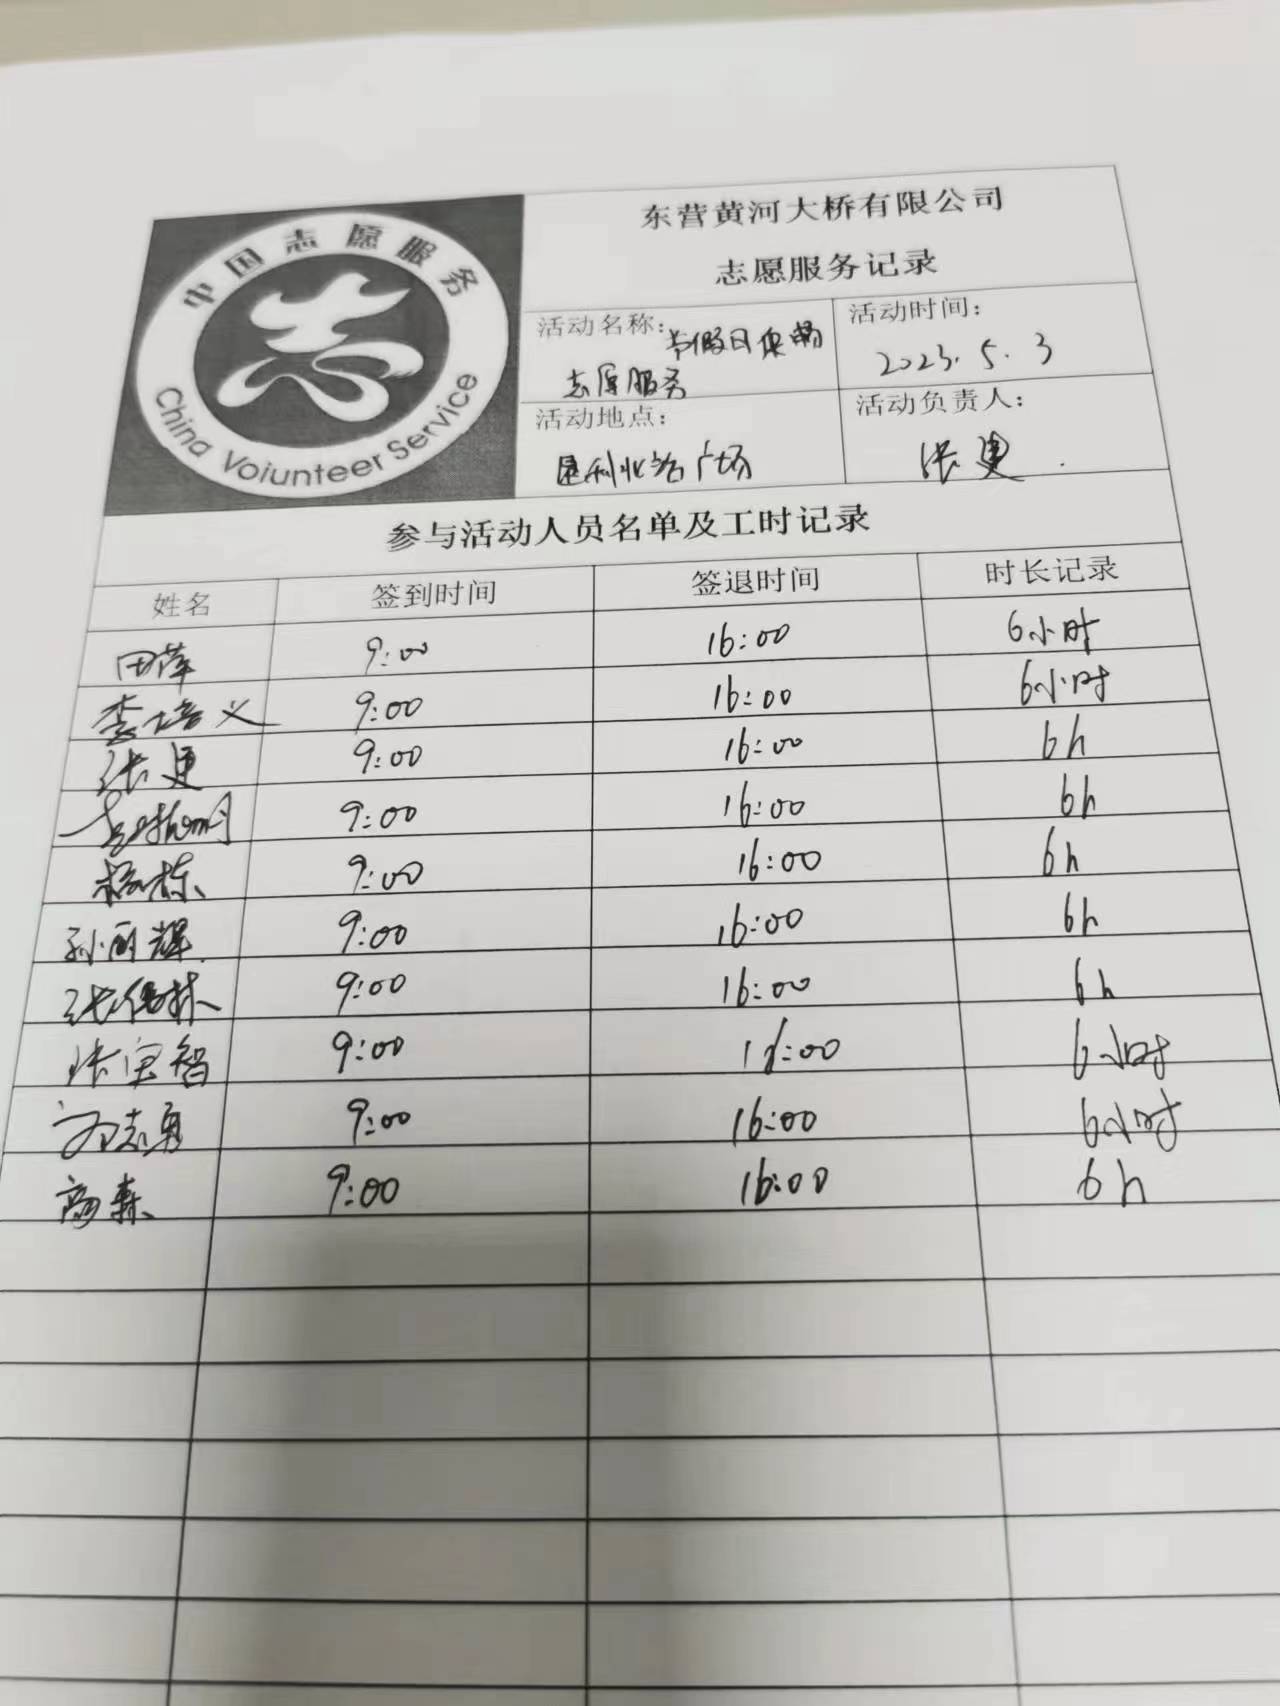 中国志愿服务
China Voiunteer Service
东营黄河大桥有限公司
志愿服务记录
活动名称：节假日
志愿服务
活动时间：
2023.5.3
活动地点：
垦利 广场
活动负责人：
张更
参与活动人员名单及工时记录
姓名 签到时间 签退时间 时长记录
田萍 9:00 16:00 6小时
李培义 9:00 16:00 6小时
张更 9:00 16:00 6h
9:00 16:00 6h
杨栋 9:00 16:00 6h
孙丽辉 9:00 16:00 6h
9:00 16:00 6h
张宝智 9:00 16:00 6小时
志勇 9:00 16:00 6小时
高森 9:00 16:00 6h